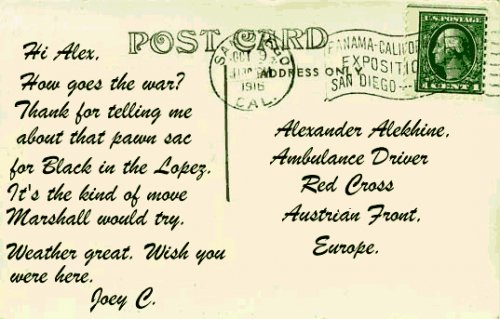 POST CARD
ADDRESS ONLY
SAN DIEGO
OCT 9
1916
CAL.
PANAMA-CALIFOR
EXPOSITIO
SAN DIEGO
U.S. POSTAGE
1 CENT 1
Hi Alex,
How goes the war?
Thank for telling me
about that pawn sac
for Black in the Lopez.
It's the kind of move
Marshall would try.
Weather great. Wish you
were here.
Joey C.
Alexander Alekhine,
Ambulance Driver
Red Cross
Austrian Front,
Europe.